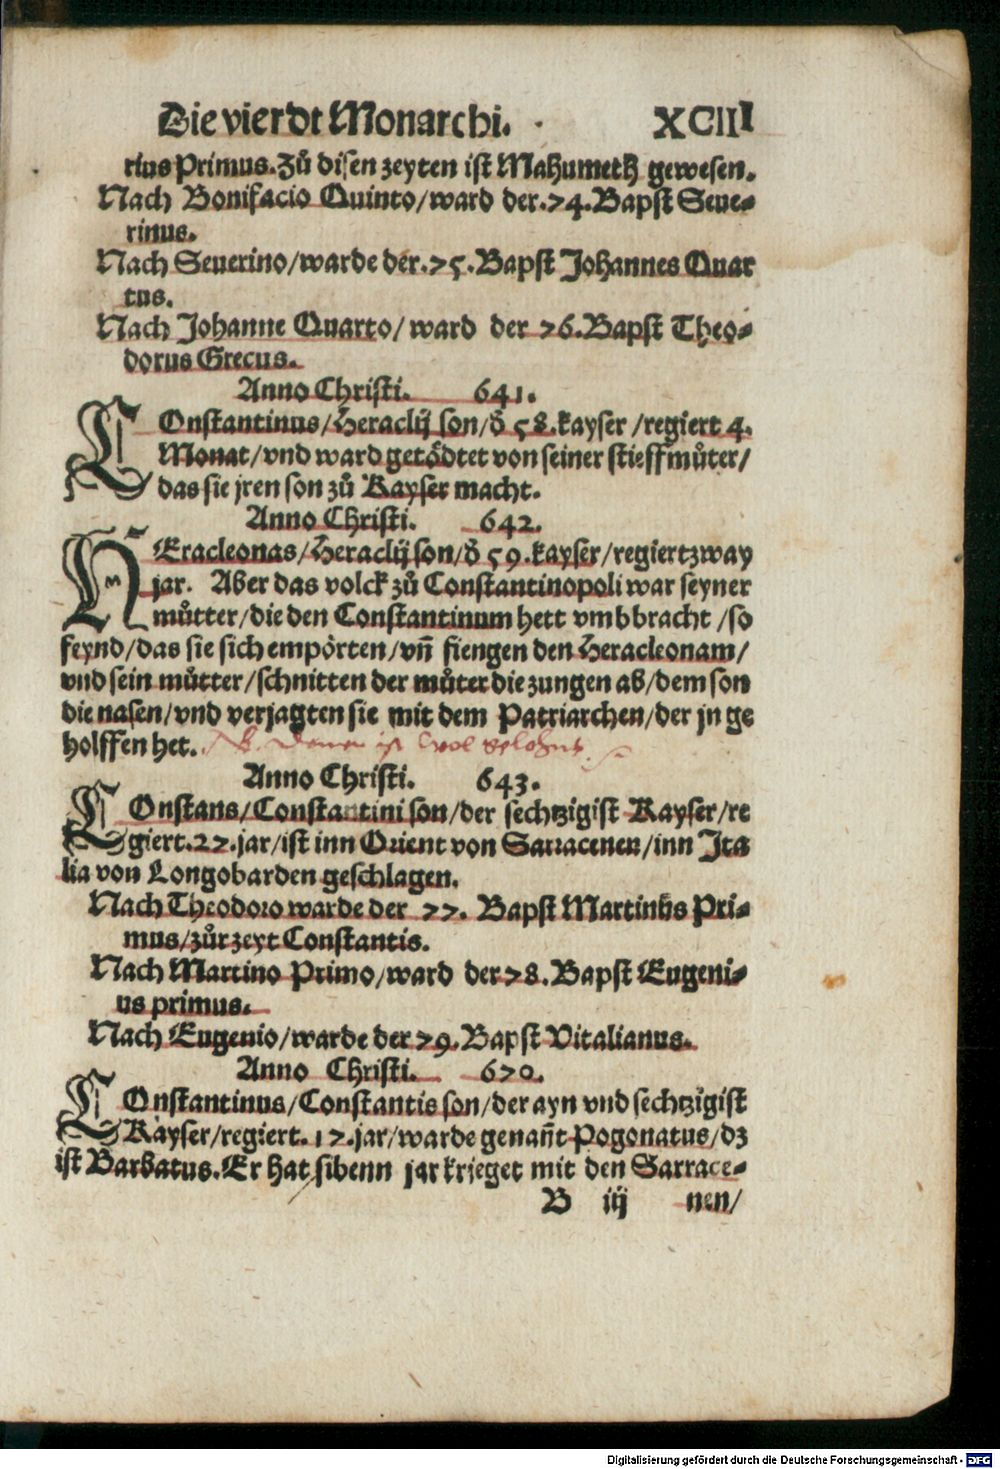 Die vierdt Monarchi. XCIII
rius Primus. Zů disen zeyten ist Mahumeth gewesen.
Nach Bonifacio Quinto/ward der .74. Bapst Seue-
rinus.
Nach Seuerino/warde der .75. Bapst Johannes Quar
tus.
Nach Johanne Quarto/ ward der 76. Bapst Theo-
dorus Grecus.
Anno Christi. 641.
COnstantinus/Heraclij son/d̕ 58. kayser /regiert 4.
Monat/vnd ward getödtet von seiner stieffmůter/
das sie jren son zů Kayser macht.
Anno Christi. 642.
HEracleonas/Heraclij son/d̕ 59. kayser/regiert zway
jar. Aber das volck zů Constantinopoli war seyner
můtter/die den Constantinum hett vmbbracht /so
feynd/das sie sich empörten/vñ fiengen den Heracleonam/
vnd sein můtter/schnitten der můter die zungen ab/dem son
die nasen/vnd verjagten sie mit dem Patriarchen/der jn ge
holffen het. ist wol gelohnt
Anno Christi. 643.
COnstans/Constantini son/der sechtzigist Kayser/re
giert .27. jar/ist inn Orient von Sarracenen/inn Ita
lia von Longobarden geschlagen.
Nach Theodoro warde der 77. Bapst Martinus Pri-
mus/zůr zeyt Constantis.
Nach Martino Primo/ward der 78. Bapst Eugeni-
us primus.
Nach Eugenio/warde der 79. Bapst Vitalianus.
Anno Christi. 670.
COnstantinus/Constantis son/der ayn vnd sechtzigist
Kayser/regiert .17. jar/warde genañt Pogonatus/dz
ist Barbatus. Er hat sibenn jar krieget mit den Sarrace-
B iij nen/
Digitalisierung gefördert durch die Deutsche Forschungsgemeinschaft - DFG